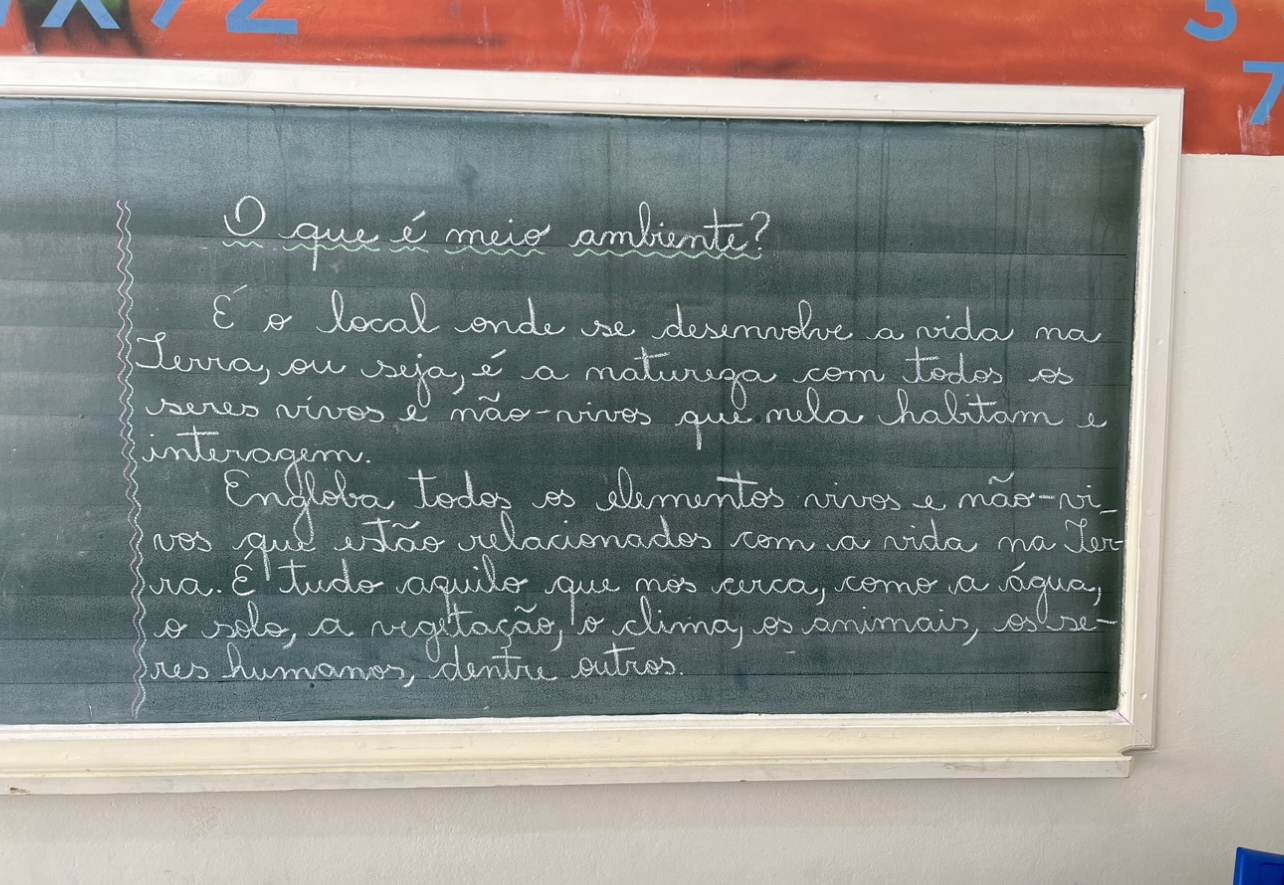 O que é meio ambiente?
É o local onde se desenvolve a vida na
Terra, ou seja, é a natureza com todos os
seres vivos e não-vivos que nela habitam e
interagem.
Engloba todos os elementos vivos e não-vi_
vos que estão relacionados com a vida na Ter-
ra. É tudo aquilo que nos cerca, como a água,
o solo, a vegetação, o clima, os animais, os se-
res humanos, dentre outros.
3
7